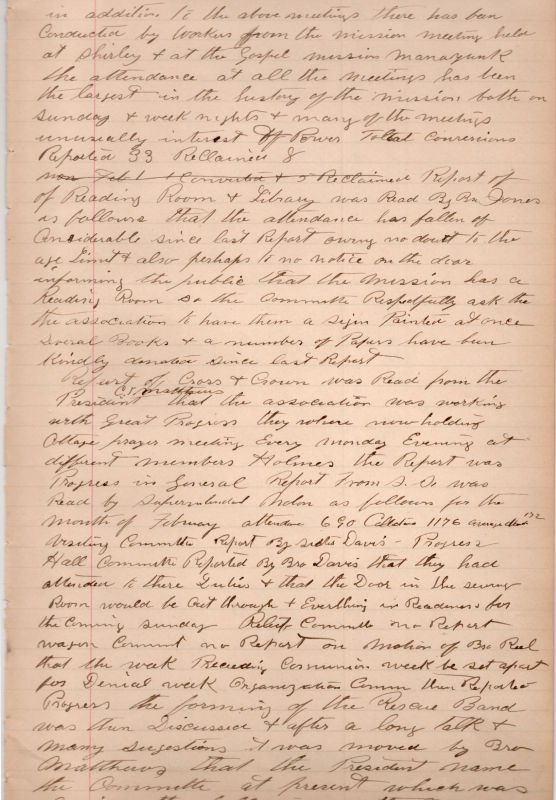 in addition to the above meetings there has been
Conducted by Workers from the mission meeting held
at Shirley & at the Gospel mission manayunk
the attendance at all the meetings has been
the largest in the history of the mission both on
Sunday & week nights & many of the meetings
unusually interest of Power Total Conversions
Reported 33 Reclaimed 8
Feb 1 & Converted & 5 Reclaimed Report of
of Reading Room & Library was Read By Bro Jones
as follows that the attendance has fallen of
Considerable since last Report owing no doutt to the
age limit & also perhaps to no notice on the door
informing the public that the Mission has a
Reading Room so the Committe Respedfully ask the
the association to have them a sign Painted at once
several Books & a number of Papers have been
Kindly donated since last Report
Report of Cross & Crown was Read from the
President C.T. Matthews that the association was working
with Great Progress they where now holding
Cottage prayer meeting Every Monday Evening at
different members Holmes the Report was
Progress in General Report From S. So was
Read by Superintendent as follows for the
Month of February attendance 690 Collection 1176 average 132
Visiting Committe Report By sister Davis - Progress
Hall Committe Reported By Bro Davis that they had
attended to there Duties & that the Door in the sewing
Room would be Cut through & Everthing in Readiness for
the Coming sunday Relief Committe no Report
wagon Commt no Report on Motion of Bro Reel
that the week Preceding Comunion week be set apart
for Denial week Organization Comm then Reported
Progress the forming of the Rescue Band
was then Discussed & after a long talk &
many sugestions it was moved by Bro
Matthews that the President name
the Committe at present which was